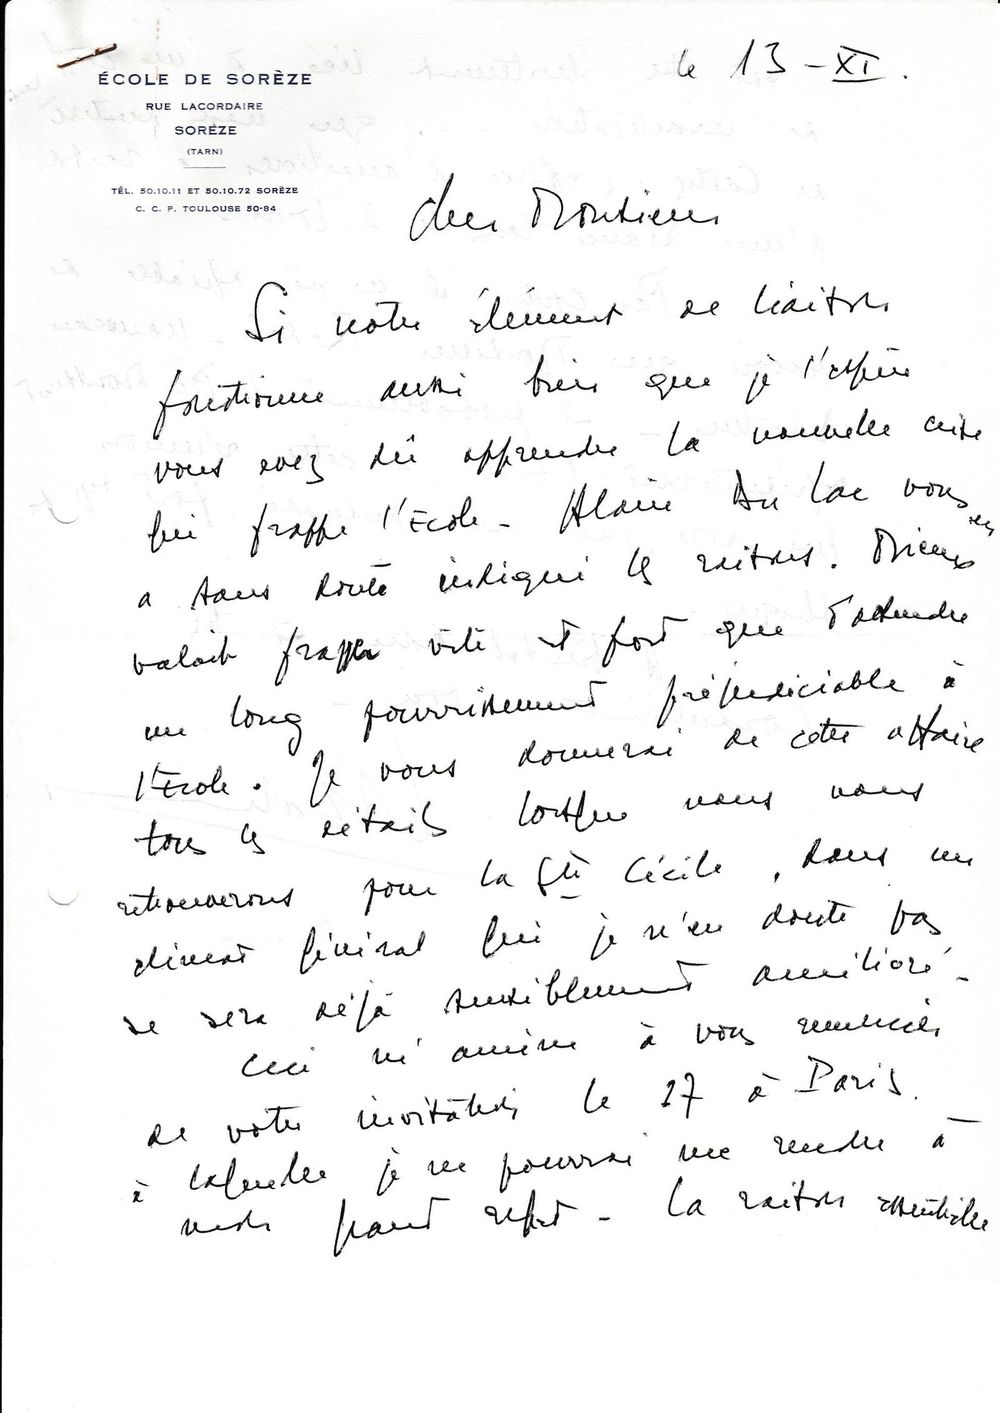 ÉCOLE DE SORÈZE
RUE LACORDAIRE
SORÈZE
(TARN)
TÉL. 50.10.11 ET 50.10.72 SORÈZE
C. C. P. TOULOUSE 50-84
le 13 - XI.
Cher Monsieur
Si notre élément de liaison
fonctionne aussi bien que je l'espère
vous avez dû apprendre la nouvelle crise
qui frappe l'Ecole - Alain du Lac vous en
a sans doute indiqué les raisons. Mieux
valait frapper vite et fort que d'attendre
un long pourrissement préjudiciable à
l'Ecole. Je vous donnerai de cette affaire
tous les détails lorsque nous nous
retrouverons pour la Ste Cécile, dans un
climat général qui je n'en doute pas
se sera déjà sensiblement amélioré -
Ceci m'amène à vous remercier
de votre invitation le 27 à Paris.
à laquelle je ne pourrai me rendre à
mon grand regret - La raison essentielle